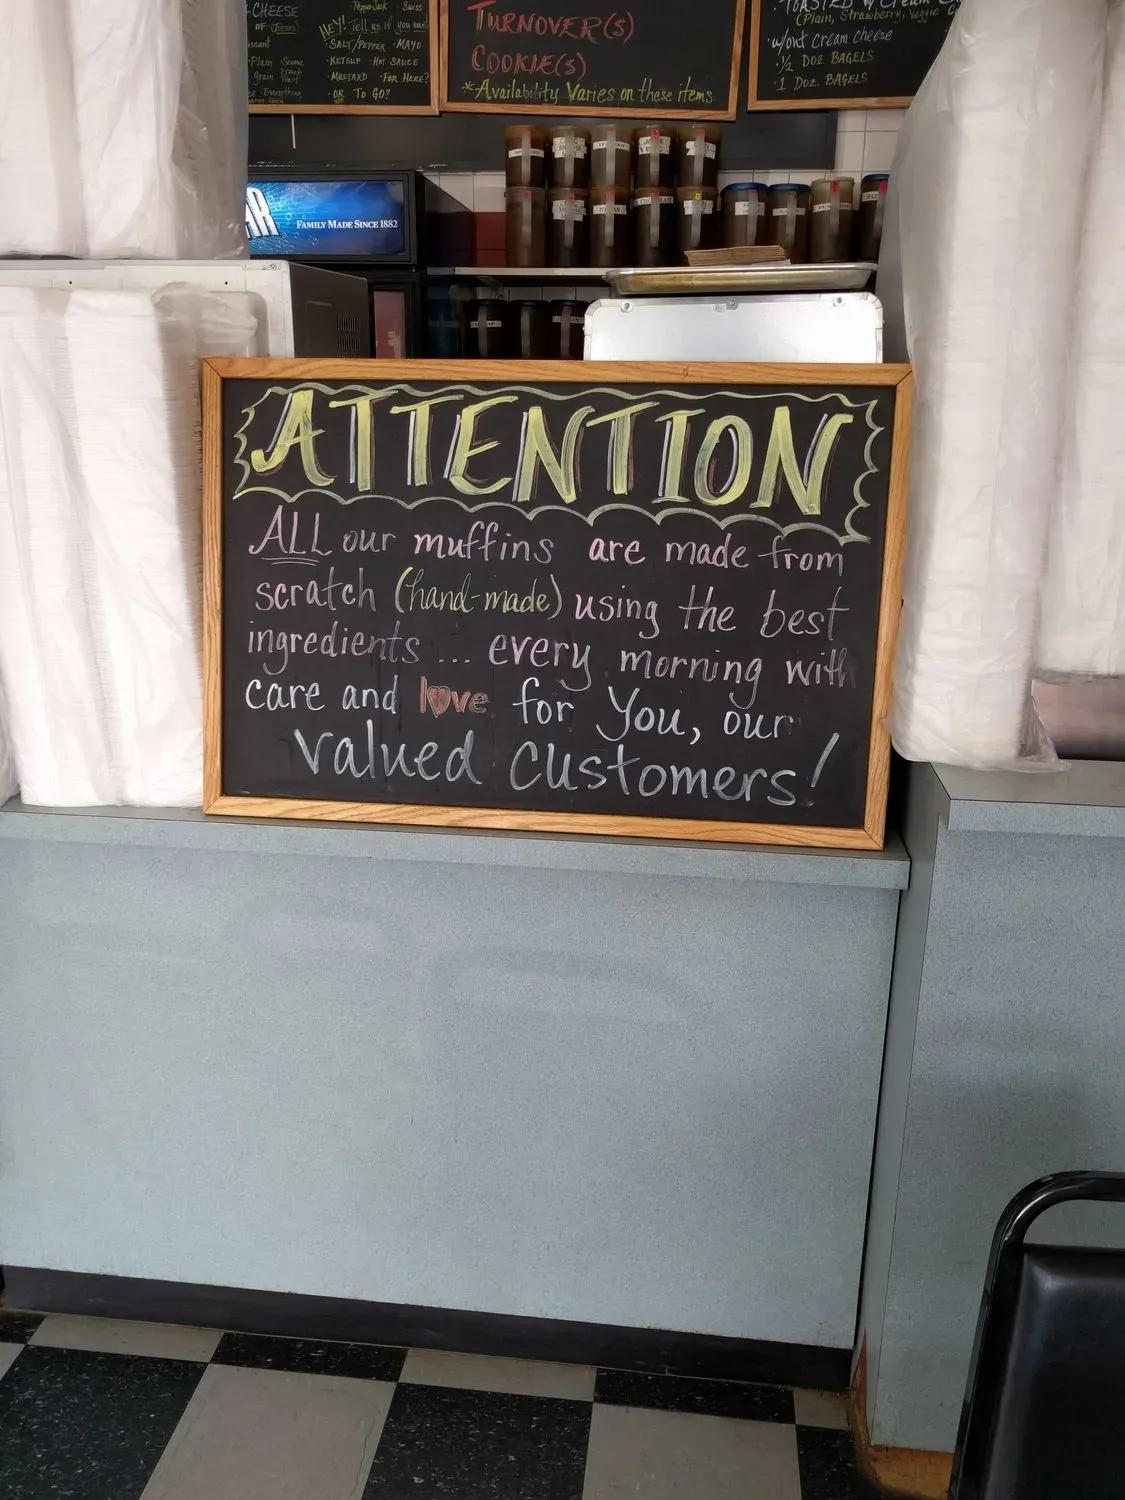 CHEESE
PepperJack Swiss
HEY! Tell us if you want
·SALT/PEPPER ·MAYO
·KETCHUP ·HOT SAUCE
·MUSTARD ·FOR HERE?
·OR TO GO?
Plain
grain French Toast
Everything
TURNOVER(S)
COOKIE(S)
*Availability Varies on these items
·TOASTED w/ Cream
(Plain, Strawberry, Veggie
·w/out cream cheese
·½ DOZ BAGELS
·1 DOZ BAGELS
FAMILY MADE SINCE 1882
ATTENTION
ALL our muffins are made from
scratch (hand-made) using the best
ingredients ... every morning with
care and love for You, our
valued customers!